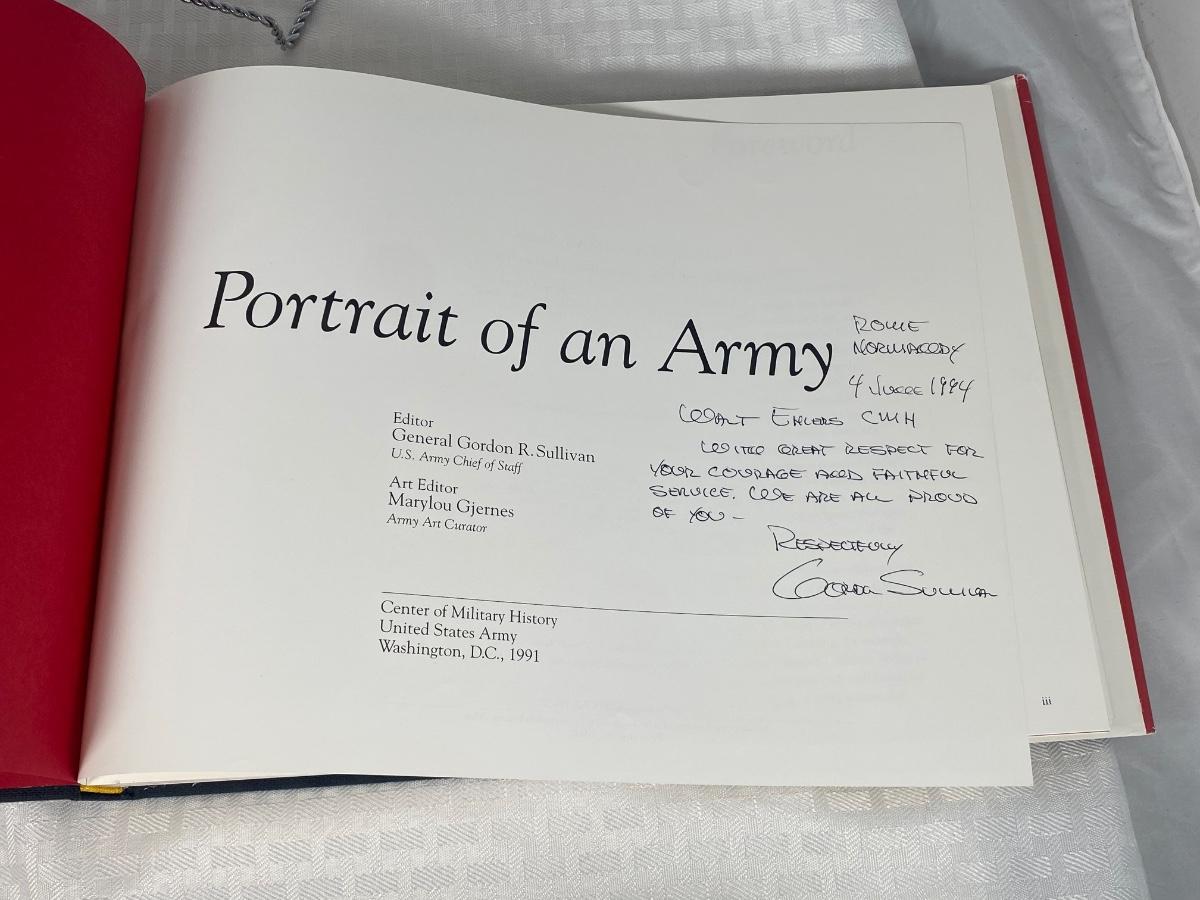 Foreword
Portrait of an Army
ROME
NORMANDY
4 June 1994
Editor
General Gordon R. Sullivan
U.S. Army Chief of Staff
Art Editor
Marylou Gjernes
Army Art Curator
WALT EHLERS CMH
WITH GREAT RESPECT FOR
YOUR COURAGE AND FAITHFUL
SERVICE. WE ARE ALL PROUD
OF YOU -
RESPECTFULLY
Gordon Sullivan
Center of Military History
United States Army
Washington, D.C., 1991
iii